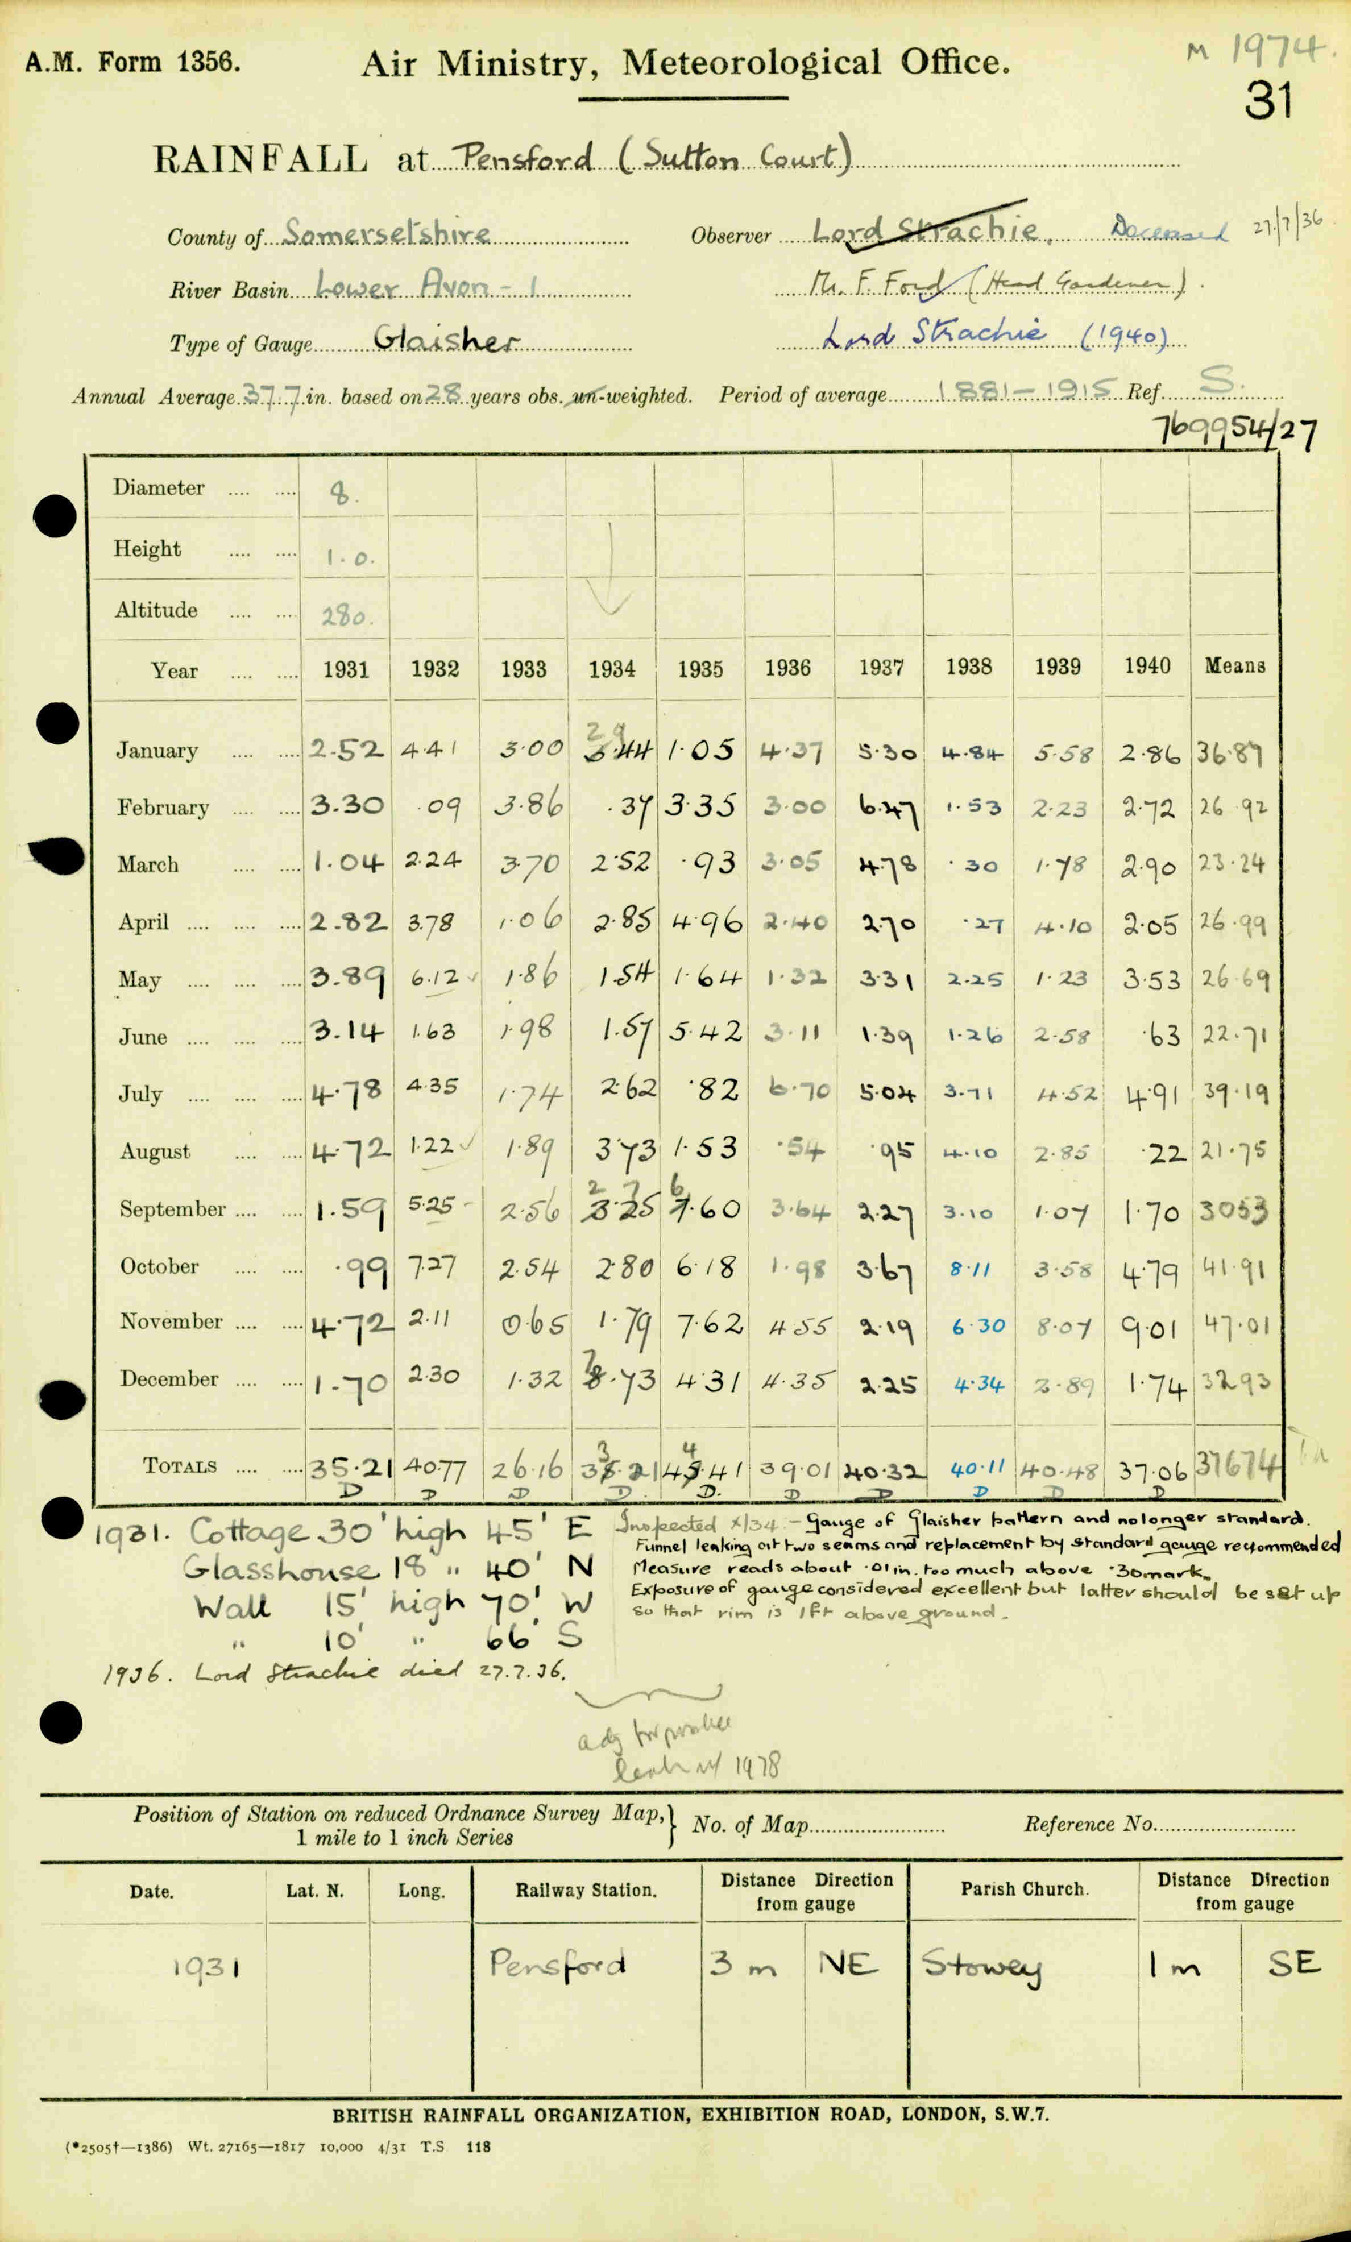 A.M. Form 1356.
Air Ministry, Meteorological Office.
M 1974.
31
RAINFALL at Pensford (Sutton Court)
County of Somersetshire Observer Lord Strachie. Deceased 27/7/36
River Basin Lower Avon - 1 Mr. F. Ford (Head Gardener).
Type of Gauge Glaisher Lord Strachie (1940)
Annual Average 37.7 in. based on 28 years obs. un-weighted. Period of average 1881-1915 Ref. S.
769954/27
Diameter 8.
Height 1.0.
Altitude 280.
Year 1931 1932 1933 1934 1935 1936 1937 1938 1939 1940 Means
29
January 2.52 4.41 3.00 3.44 1.05 4.37 5.30 4.84 5.58 2.86 36.87
February 3.30 .09 3.86 .37 3.35 3.00 6.47 1.53 2.23 2.72 26.92
March 1.04 2.24 3.70 2.52 .93 3.05 4.78 .30 1.78 2.90 23.24
April 2.82 3.78 1.06 2.85 4.96 2.40 2.70 .27 4.10 2.05 26.99
May 3.89 6.12 ✓ 1.86 1.54 1.64 1.32 3.31 2.25 1.23 3.53 26.69
June 3.14 1.63 1.98 1.57 5.42 3.11 1.39 1.26 2.58 .63 22.71
July 4.78 4.35 1.74 2.62 .82 6.70 5.04 3.71 4.52 4.91 39.19
August 4.72 1.22 ✓ 1.89 3.73 1.53 .54 .95 4.10 2.85 .22 21.75
2 7 6
September 1.59 5.25 - 2.56 3.25 7.60 3.64 2.27 3.10 1.07 1.70 3053
October .99 7.27 2.54 2.80 6.18 1.98 3.67 8.11 3.58 4.79 41.91
November 4.72 2.11 0.65 1.79 7.62 4.55 2.19 6.30 8.07 9.01 47.01
7
December 1.70 2.30 1.32 8.73 4.31 4.35 2.25 4.34 2.89 1.74 3293
3 4
TOTALS 35.21 40.77 26.16 35.21 45.41 39.01 40.32 40.11 40.48 37.06 37674
D D D D. D. D D D D D
1931. Cottage 30' high 45' E
Glasshouse 18 " 40' N
Wall 15' high 70' W
" 10' " 66' S
1936. Lord Strachie died 27.7.36.
Inspected x/34 - Gauge of Glaisher pattern and no longer standard.
Funnel leaking at two seams and replacement by standard gauge recommended
Measure reads about .01 in. too much above .30 mark.
Exposure of gauge considered excellent but latter should be set up
so that rim is 1ft above ground.
adj for
1978
Position of Station on reduced Ordnance Survey Map, } No. of Map Reference No.
1 mile to 1 inch Series
Date. Lat. N. Long. Railway Station. Distance Direction from gauge Parish Church. Distance Direction from gauge
1931 Pensford 3 m NE Stowey 1 m SE
BRITISH RAINFALL ORGANIZATION, EXHIBITION ROAD, LONDON, S.W.7.
(*2505†—1386) Wt. 27165—1817 10,000 4/31 T.S 118